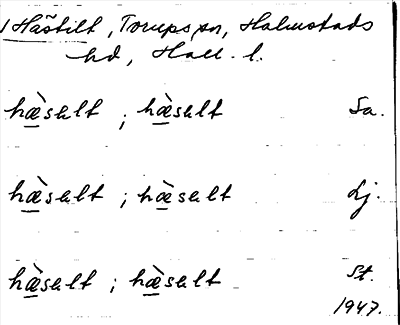 1 Hästilt, Torups sn, Halmstads
hd, Hall. l.
hæ̀sɛlt ; hæ̀sɛlt Sa.
hæ̀sɛlt ; hæ̀sɛlt Lj.
hæ̀sɛlt ; hæ̀sɛlt St.
1947.